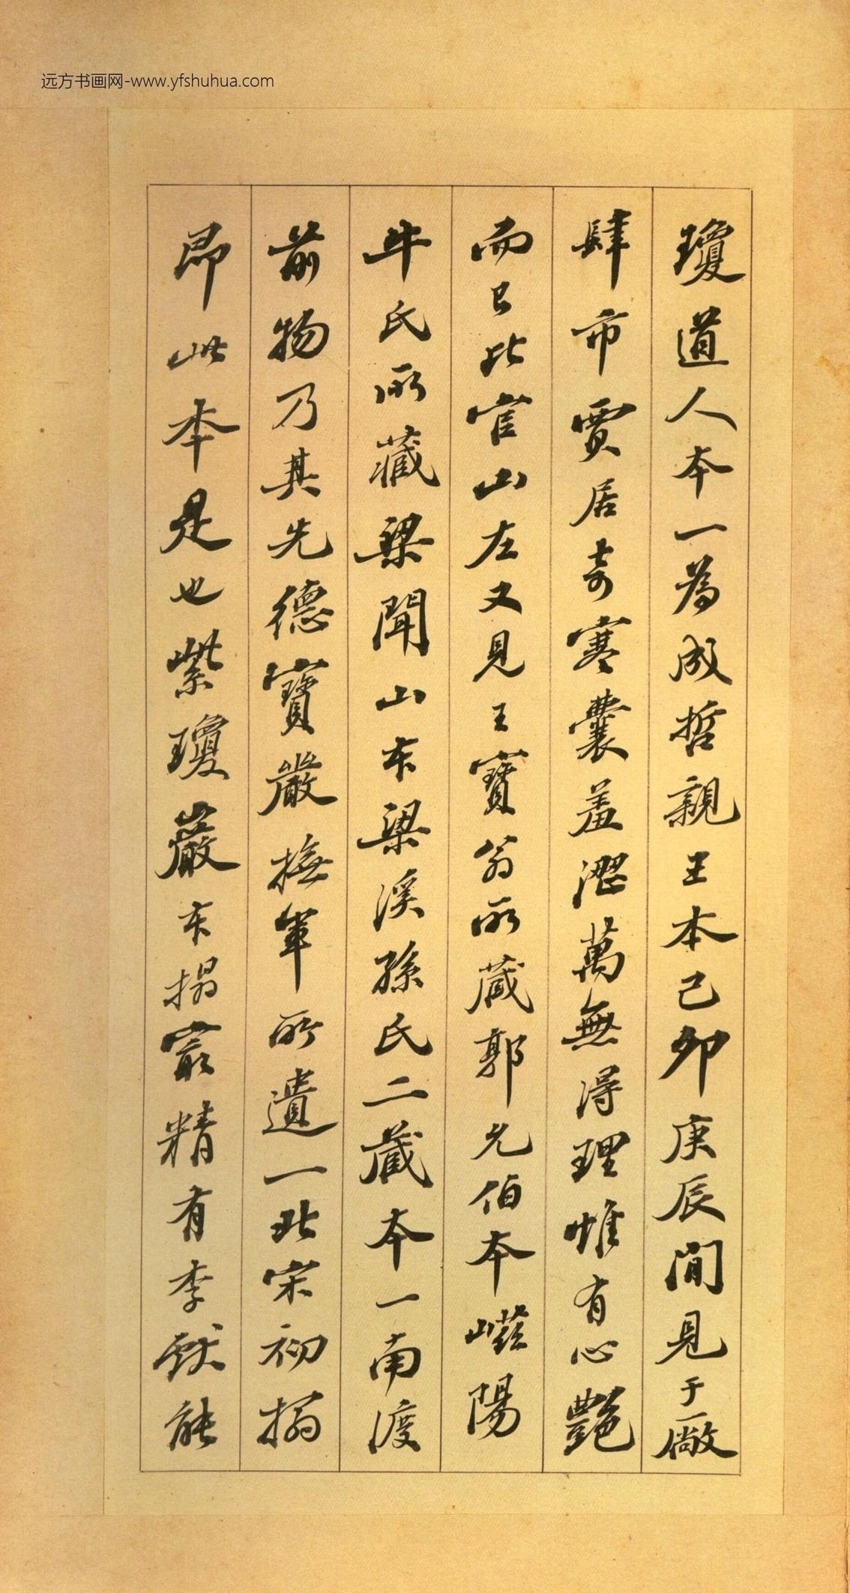 远方书画网-www.yfshuhua.com
瓊道人本一為成哲親王本己卯庚辰間見于廠
肆市賈居奇寒囊羞澀萬無得理惟有心艷
而已比官山左又見王寶翁所藏郭允伯本嶫陽
牛氏所藏梁聞山本梁溪孫氏二藏本一南渡
前物乃其先德寶嚴撫軍所遺一北宋初搨
即此本是也紫瓊巖本搨最精有李獻能